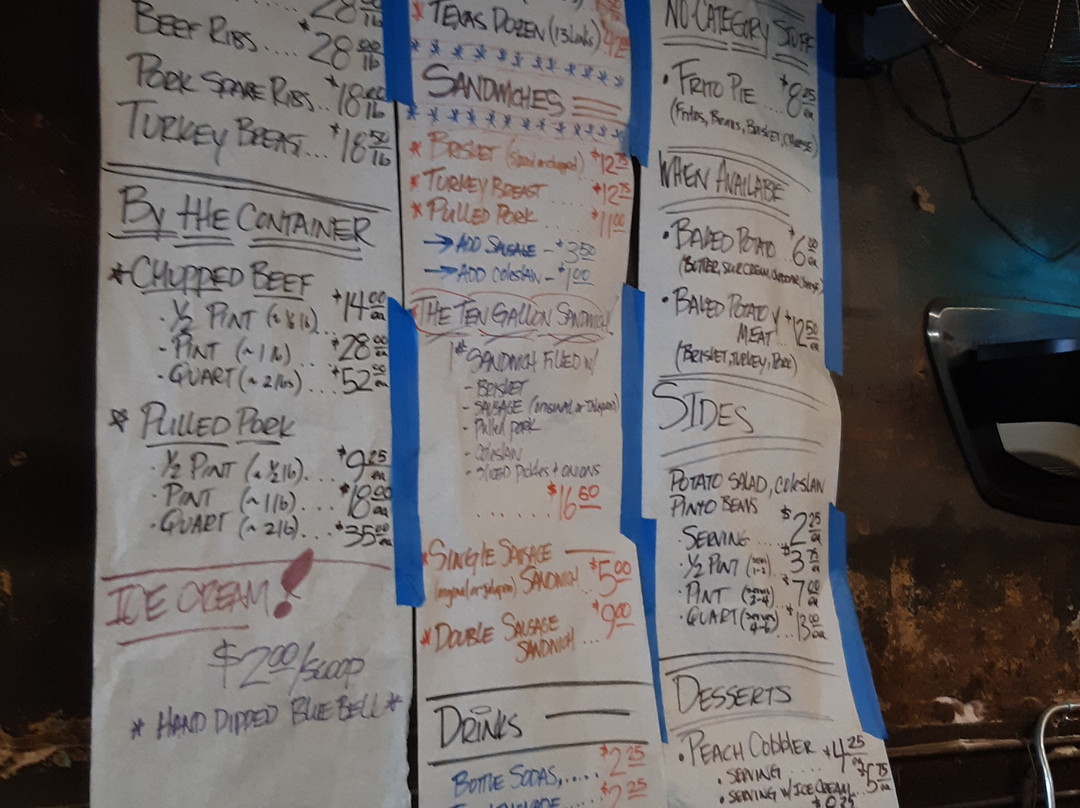 28 00 lb
BEEF RIBS.... $28 00 lb
PORK SPARE RIBS.. $18 00 lb
TURKEY BREAST... $18 50 lb
BY THE CONTAINER
* CHOPPED BEEF
· ½ PINT (~ ½ lb)... $14 00 ea
- PINT (~ 1 lb) ... $28 00 ea
- QUART (~ 2 lbs)... $52 00 ea
* PULLED PORK
· ½ PINT (~ ½ lb).. $9 25 ea
· PINT (~ 1 lb) ... $18 00 ea
· QUART (~ 2 lb)... $35 00 ea
ICE CREAM!
$2 00/SCOOP
* HAND DIPPED BLUE BELL *
* TEXAS DOZEN (13 Links) 42 00
SANDWICHES
* BRISKET (sliced or chopped) $12 75
* TURKEY BREAST .... $12 75
* PULLED PORK .... $11 00
→ ADD SAUSAGE - $3 50
→ ADD COLESLAW - $1 00
THE TEN GALLON SANDWICH
1# SANDWICH FILLED W/
- BRISKET
- SAUSAGE (original or Jalapeno)
- Pulled pork
- Coleslaw
- SLICED PICKLES + ONIONS
...... $16 50
* SINGLE SAUSAGE
(original or jalapeno) SANDWICH.. $5 00
* DOUBLE SAUSAGE $9 00
SANDWICH...
DRINKS
BOTTLE SODAS,..... $2 25
2 25
NO-CATEGORY STUFF
· FRITO PIE ... $8 25 ea
(Fritos, Beans, Brisket, Cheese)
WHEN AVAILABLE
· BAKED POTATO .. $6 00 ea
(BUTTER, SOUR CREAM, CHEDDAR CHEESE)
· BAKED POTATO w/
MEAT.. $12 50 ea
(BRISKET, TURKEY, PORK)
SIDES
POTATO SALAD, COLESLAW
PINTO BEANS
SERVING ... $2 25 ea
· ½ PINT (serves 1-2) .. $3 75 ea
· PINT (serves 2-4) .. $7 00 ea
· QUART (serves 4-6) .. $13 00 ea
DESSERTS
· PEACH COBBLER
· SERVING ..... $4 25 ea
· SERVING W/ICE CREAM... $5 75 ea